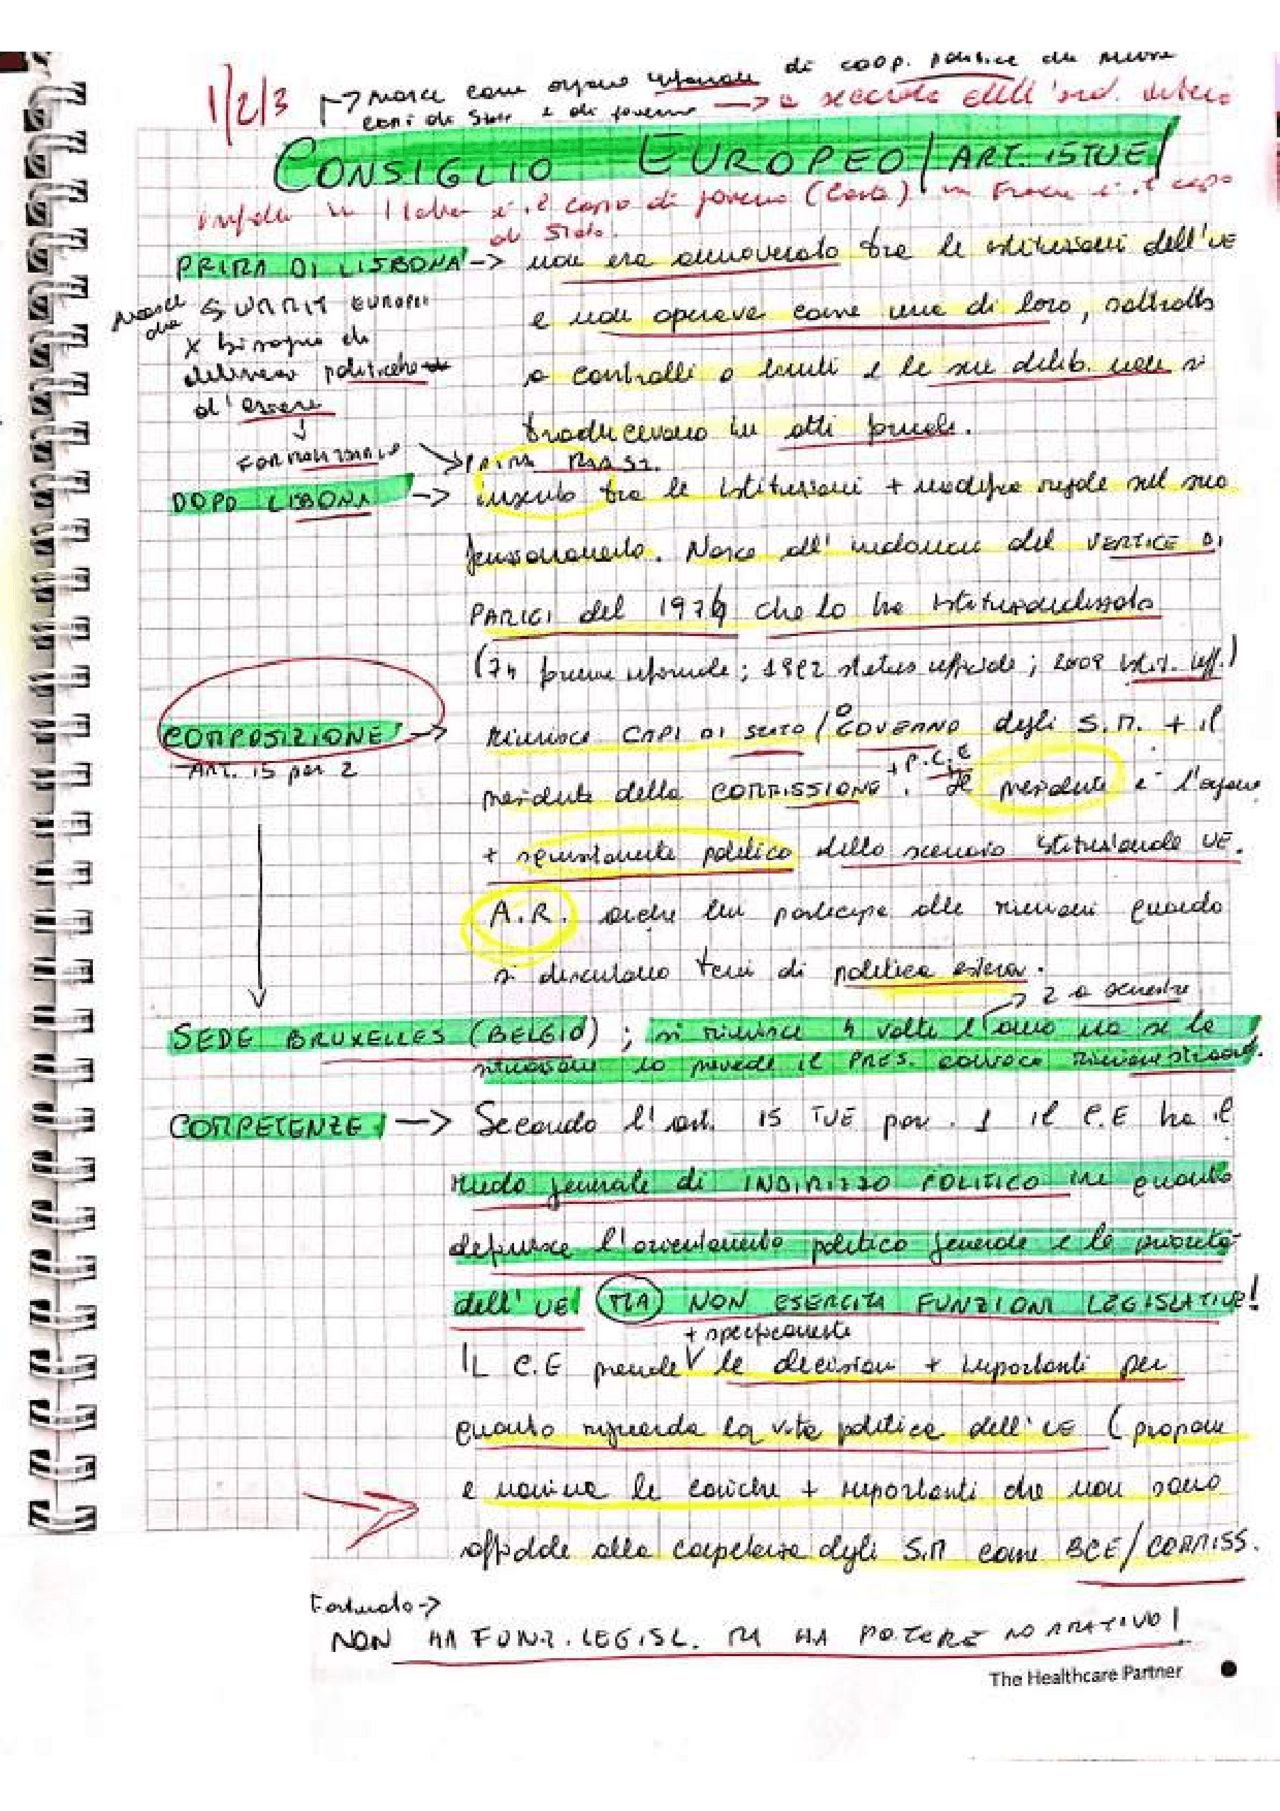 1/2/3 → nasce come organo informale di coop. politica che riunire
capi di Stato e di governo → a seconda dell'ord. interno
CONSIGLIO EUROPEO / ART. 15 TUE /
infatti in Italia è il capo di governo (Conte) in Francia è il capo
di Stato.
PRIMA DI LISBONA → non era annoverato tra le istituzioni dell'UE
e non operava come una di loro, sottratto
a controlli o limiti e le sue delib. non si
traducevano in atti
nasce da SUMMIT EUROPEI
x bisogno di
delineare politiche
d'essere
↓
FORMALIZZARLO
PRIMA PARIGI.
DOPO LISBONA → inserito tra le istituzioni + modifica regole sul suo
funzionamento. Nasce all' del VERTICE DI
PARIGI del 1974 che lo ha istituzionalizzato
(74 forum informale; 1992 status ufficiale; 2009 ist. uff.)
COMPOSIZIONE → riunisce CAPI DI STATO / O GOVERNO degli S.M. + il
ART. 15 par 2
presidente della COMMISSIONE + P.C.E. Il presidente è l'organo
+ squisitamente politico dello scenario istituzionale UE.
A.R. anche lui partecipa alle riunioni quando
si discutano temi di politica estera.
→ 2 a semestre
SEDE BRUXELLES (BELGIO) ; si riunisce 4 volte l'anno ma se la
situazione lo prevede il PRES. convoca riunione straord.
COMPETENZE → Secondo l'art. 15 TUE par. 1 il C.E ha il
ruolo generale di INDIRIZZO POLITICO in quanto
definisce l'orientamento politico generale e le priorità
dell' UE MA NON ESERCITA FUNZIONI LEGISLATIVE!
+ specificamente
IL C.E prende V le decisioni + importanti per
quanto riguarda la vita politica dell'UE (propone
e nomina le cariche + importanti che non sono
affidate alla competenza degli S.M come BCE/COMMISS.
→
NON HA FUNZ. LEGISL. MA HA POTERE NORMATIVO!
The Healthcare Partner